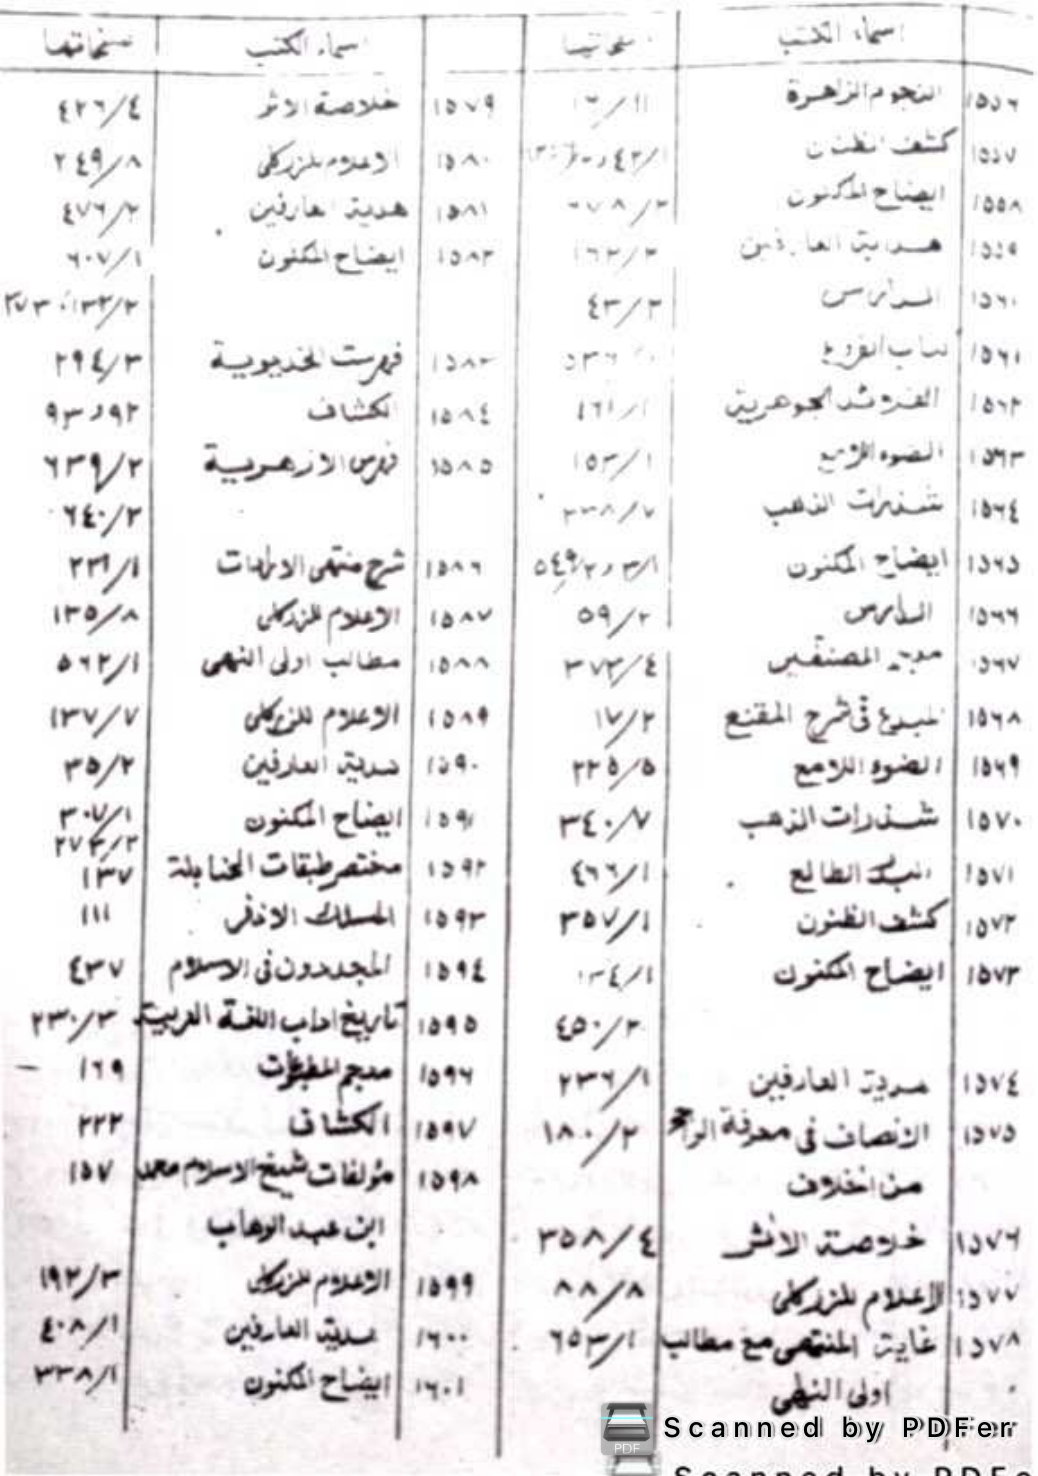 اسماء الكتب صفحاتها
١٥٥٦ النجوم الزاهرة
١٥٥٧ كشف الظنون
١٥٥٨ ايضاح المكنون ٦٧٨/٢
١٥٥٩ هداية العارفين ١٦٢/٢
١٥٦٠ ٤٣/٢
١٥٦١
١٥٦٢ الجوهرية ٤٦١/١
١٥٦٣ الضوء اللامع ١٥٣/١
١٥٦٤ شذرات الذهب ٢٣٨/٧
١٥٦٥ ايضاح المكنون
١٥٦٦ ٥٩/٢
١٥٦٧ المصنفين ٣٧٣/٤
١٥٦٨ المبدع في شرح المقنع ١٧/٢
١٥٦٩ الضوء اللامع ٢٢٥/٥
١٥٧٠ شذرات الذهب ٣٤٠/٧
١٥٧١ البدر الطالع ٤٦٦/١
١٥٧٢ كشف الظنون ٣٥٧/١
١٥٧٣ ايضاح المكنون
٤٥٠/٢
١٥٧٤ هدية العارفين ٢٣٦/١
١٥٧٥ الانصاف في معرفة الراجح ١٨٠/٢
من الخلاف
١٥٧٦ خلاصة الاثر ٣٥٨/٤
١٥٧٧ الاعلام للزركلي ٨٨/٨
١٥٧٨ غاية المنتهى مع مطالب ٦٥٣/١
اولى النهى
اسماء الكتب صفحاتها
١٥٧٩ خلاصة الاثر ٤٢٦/٤
١٥٨٠ الاعلام للزركلي ٢٤٩/٨
١٥٨١ هدية العارفين ٤٧٦/٢
١٥٨٢ ايضاح المكنون ٦٠٧/١
١٣٢/٢، ٢٧٣
١٥٨٣ فهرست الخديوية ٢٩٤/٣
١٥٨٤ الكشاف ٩٢ و ٩٣
١٥٨٥ فهرس الازهرية ٦٣٩/٢
٦٤٠/٢
١٥٨٦ شرح منتهى الارادات ٢٣١/١
١٥٨٧ الاعلام للزركلي ١٣٥/٨
١٥٨٨ مطالب اولى النهى ٥٦٢/١
١٥٨٩ الاعلام للزركلي ١٣٧/٧
١٥٩٠ هدية العارفين ٣٥/٢
١٥٩١ ايضاح المكنون ٣٠٧/١
٢٧٣/٢
١٥٩٢ مختصر طبقات الحنابلة ١٣٧
١٥٩٣ المسك الاذفر ١١١
١٥٩٤ المجددون في الاسلام ٤٣٧
١٥٩٥ تاريخ اداب اللغة العربية ٢٣٠/٣
١٥٩٦ معجم المطبوعات ١٦٩
١٥٩٧ الكشاف ٢٢٢
١٥٩٨ مؤلفات شيخ الاسلام محمد ١٥٧
ابن عبد الوهاب
١٥٩٩ الاعلام للزركلي ١٩٢/٣
١٦٠٠ هدية العارفين ٤٠٨/١
١٦٠١ ايضاح المكنون ٣٣٨/١
PDF Scanned by PDFer
Scanned by PDFe